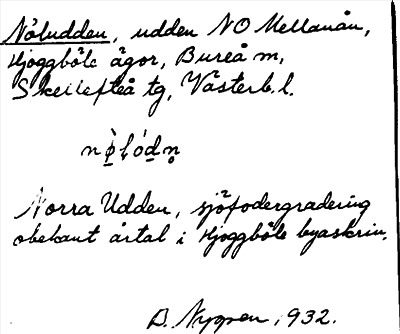 Nöludden, udden NO Mellanån,
Hjoggböle ägor, Bureå m,
Skellefteå tg, Västerb. l.
nø̀ḷóḍṇ
Norra Udden, sjöfodergradering
obekant årtal i Hjoggböle byaskrin.
B. Nyppen, 1932.